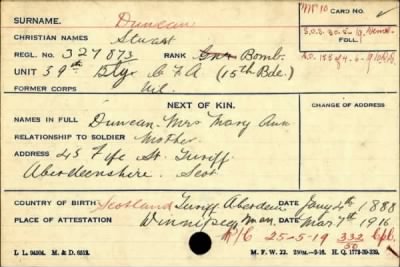 SURNAME. Duncan
CARD NO.
CHRISTIAN NAMES Stuart
REGL. NO. 327873 RANK Gnr Bomb.
FOLL.
UNIT 59th Bty C F A (15th Bde)
FORMER CORPS Nil.
NEXT OF KIN.
CHANGE OF ADDRESS
NAMES IN FULL Duncan Mrs Mary Ann
RELATIONSHIP TO SOLDIER Mother
ADDRESS 45 Fife St. Turriff
Aberdeenshire. Scot
COUNTRY OF BIRTH Scotland Turriff Aberdeen DATE Jany 4th 1888
PLACE OF ATTESTATION Winnipeg Man. DATE Mar 7th 1916
25-5-19 332
L L. 94004. M. & D. 6512. M. F. W. 22. H. Q. 1772-39-339.